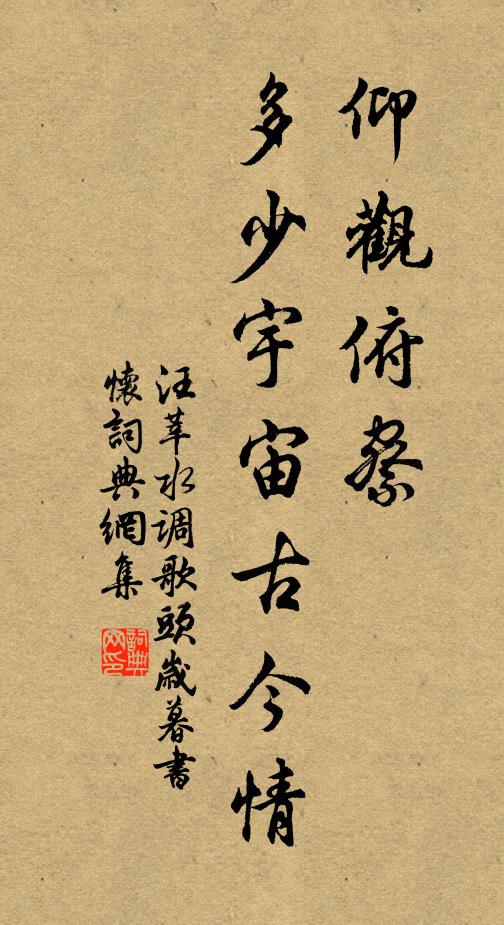 仰觀俯察
多少宇宙古今情
汪莘水调歌頭歲暮書
懷詞典網集
詞典
网印